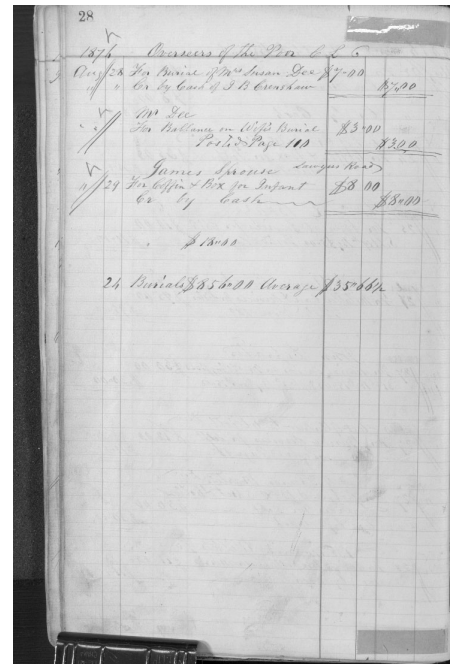 28
1876 Overseers of the Poor
Aug 28 For Burial of Mrs Susan Dee $7.00
" " Cr by Cash of D B Crenshaw $7.00
Mr Dee
" " For Ballance on Wifes Burial $3.00
Posted Page 110 $3.00
James Sprouse Sawyers Road
" 29 For Coffin & Box for Infant $8.00
Cr by Cash $8.00
$18.00
24 Burials $856.00 Average $35.66½